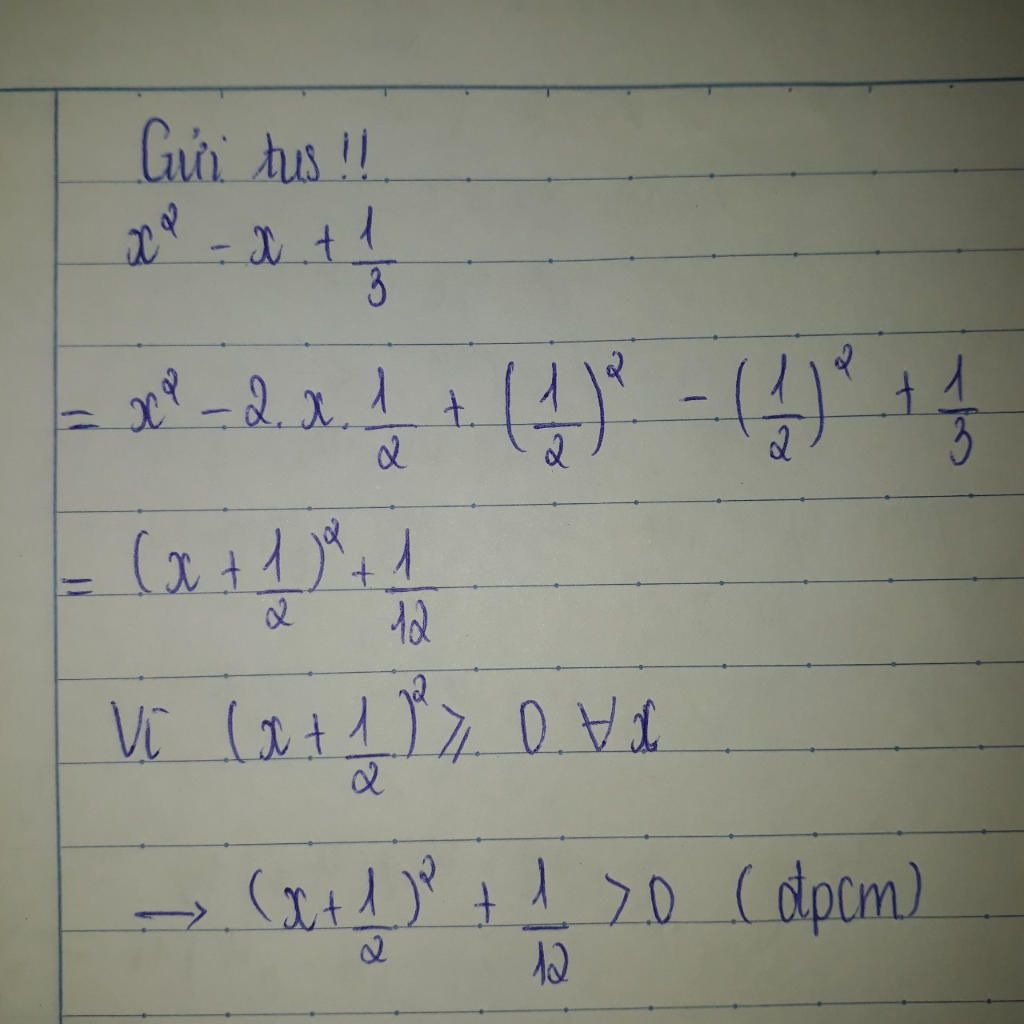 Gửi tus !!
x² - x + 1/3
= x² - 2. x. 1/2 + (1/2)² - (1/2)² + 1/3
= (x + 1/2)² + 1/12
Vì (x + 1/2)² ⩾ 0 ∀x
→ (x + 1/2)² + 1/12 > 0 (đpcm)